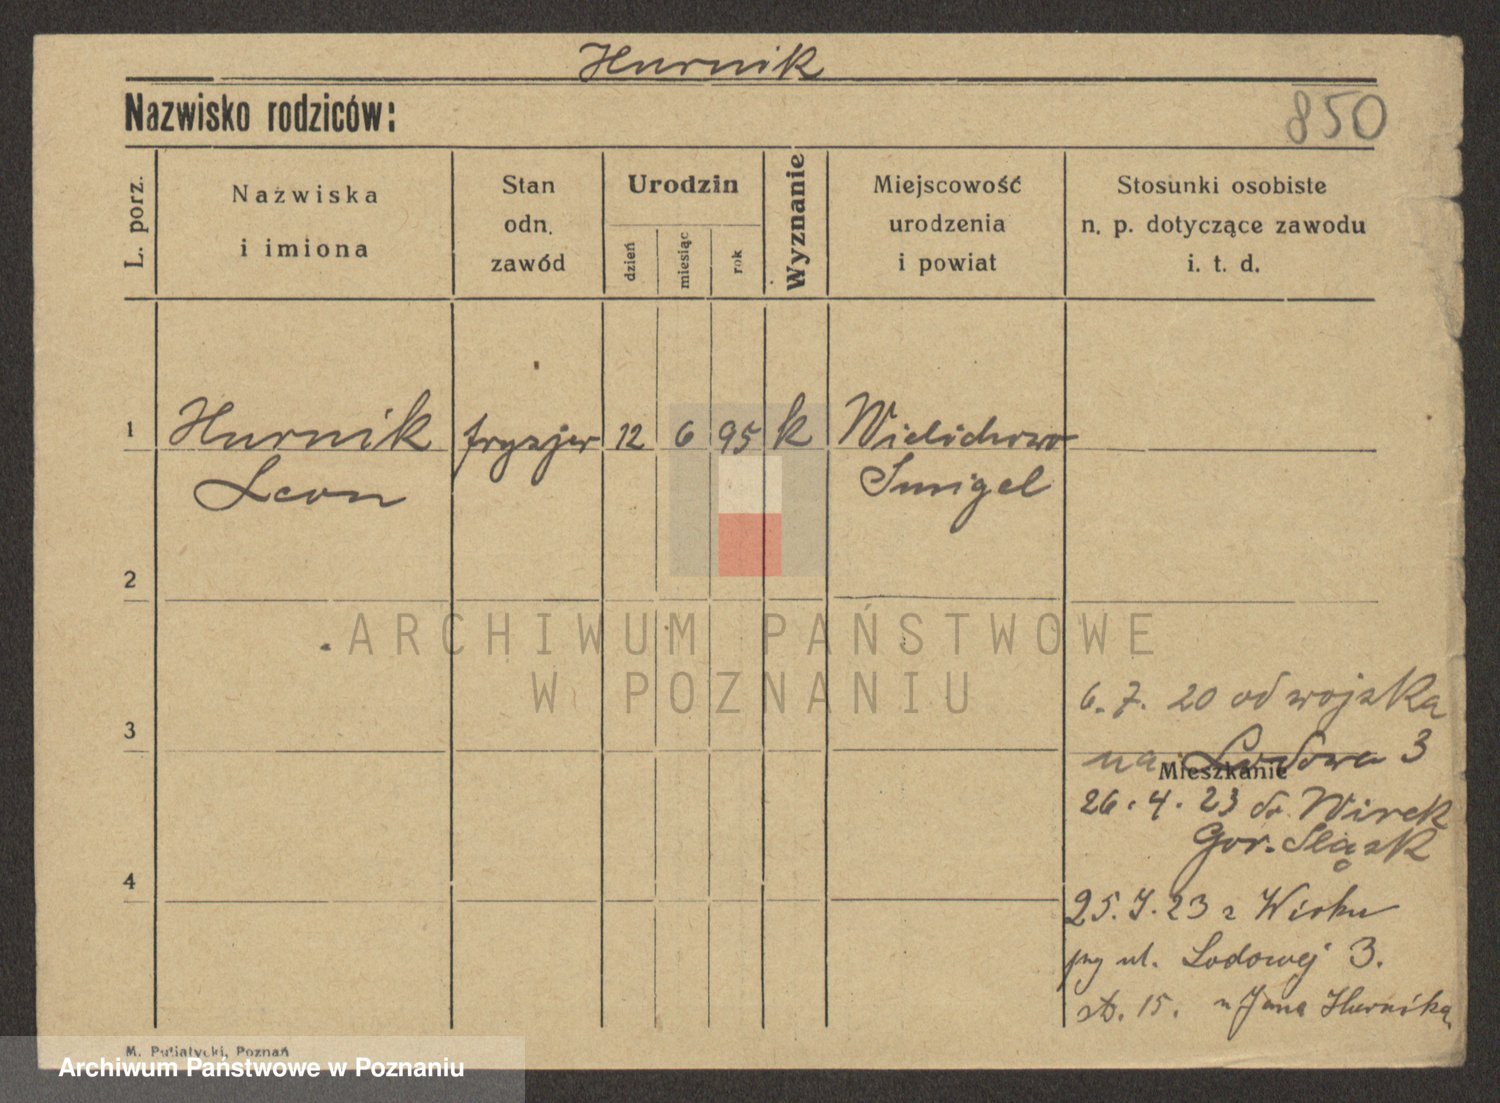 Hurnik
Nazwisko rodziców:
850
L. porz.
Nazwiska
i imiona
Stan
odn.
zawód
Urodzin
dzień
miesiąc
rok
Wyznanie
Miejscowość
urodzenia
i powiat
Stosunki osobiste
n. p. dotyczące zawodu
i. t. d.
1
Hurnik fryzjer 12 6 95 k Wielichowo
Leon Smigel
2
ARCHIWUM PAŃSTWOWE
W POZNANIU
3
6. 7. 20 od wojska
na Lodowa 3
Mieszkanie
26. 4. 23 do Wirek
Gor. Śląsk
4
25. 7. 23 z Wirku
przy ul. Lodowej 3.
st. 15. u Jana Hurnika
M. Putiatycki, Poznań
Archiwum Państwowe w Poznaniu